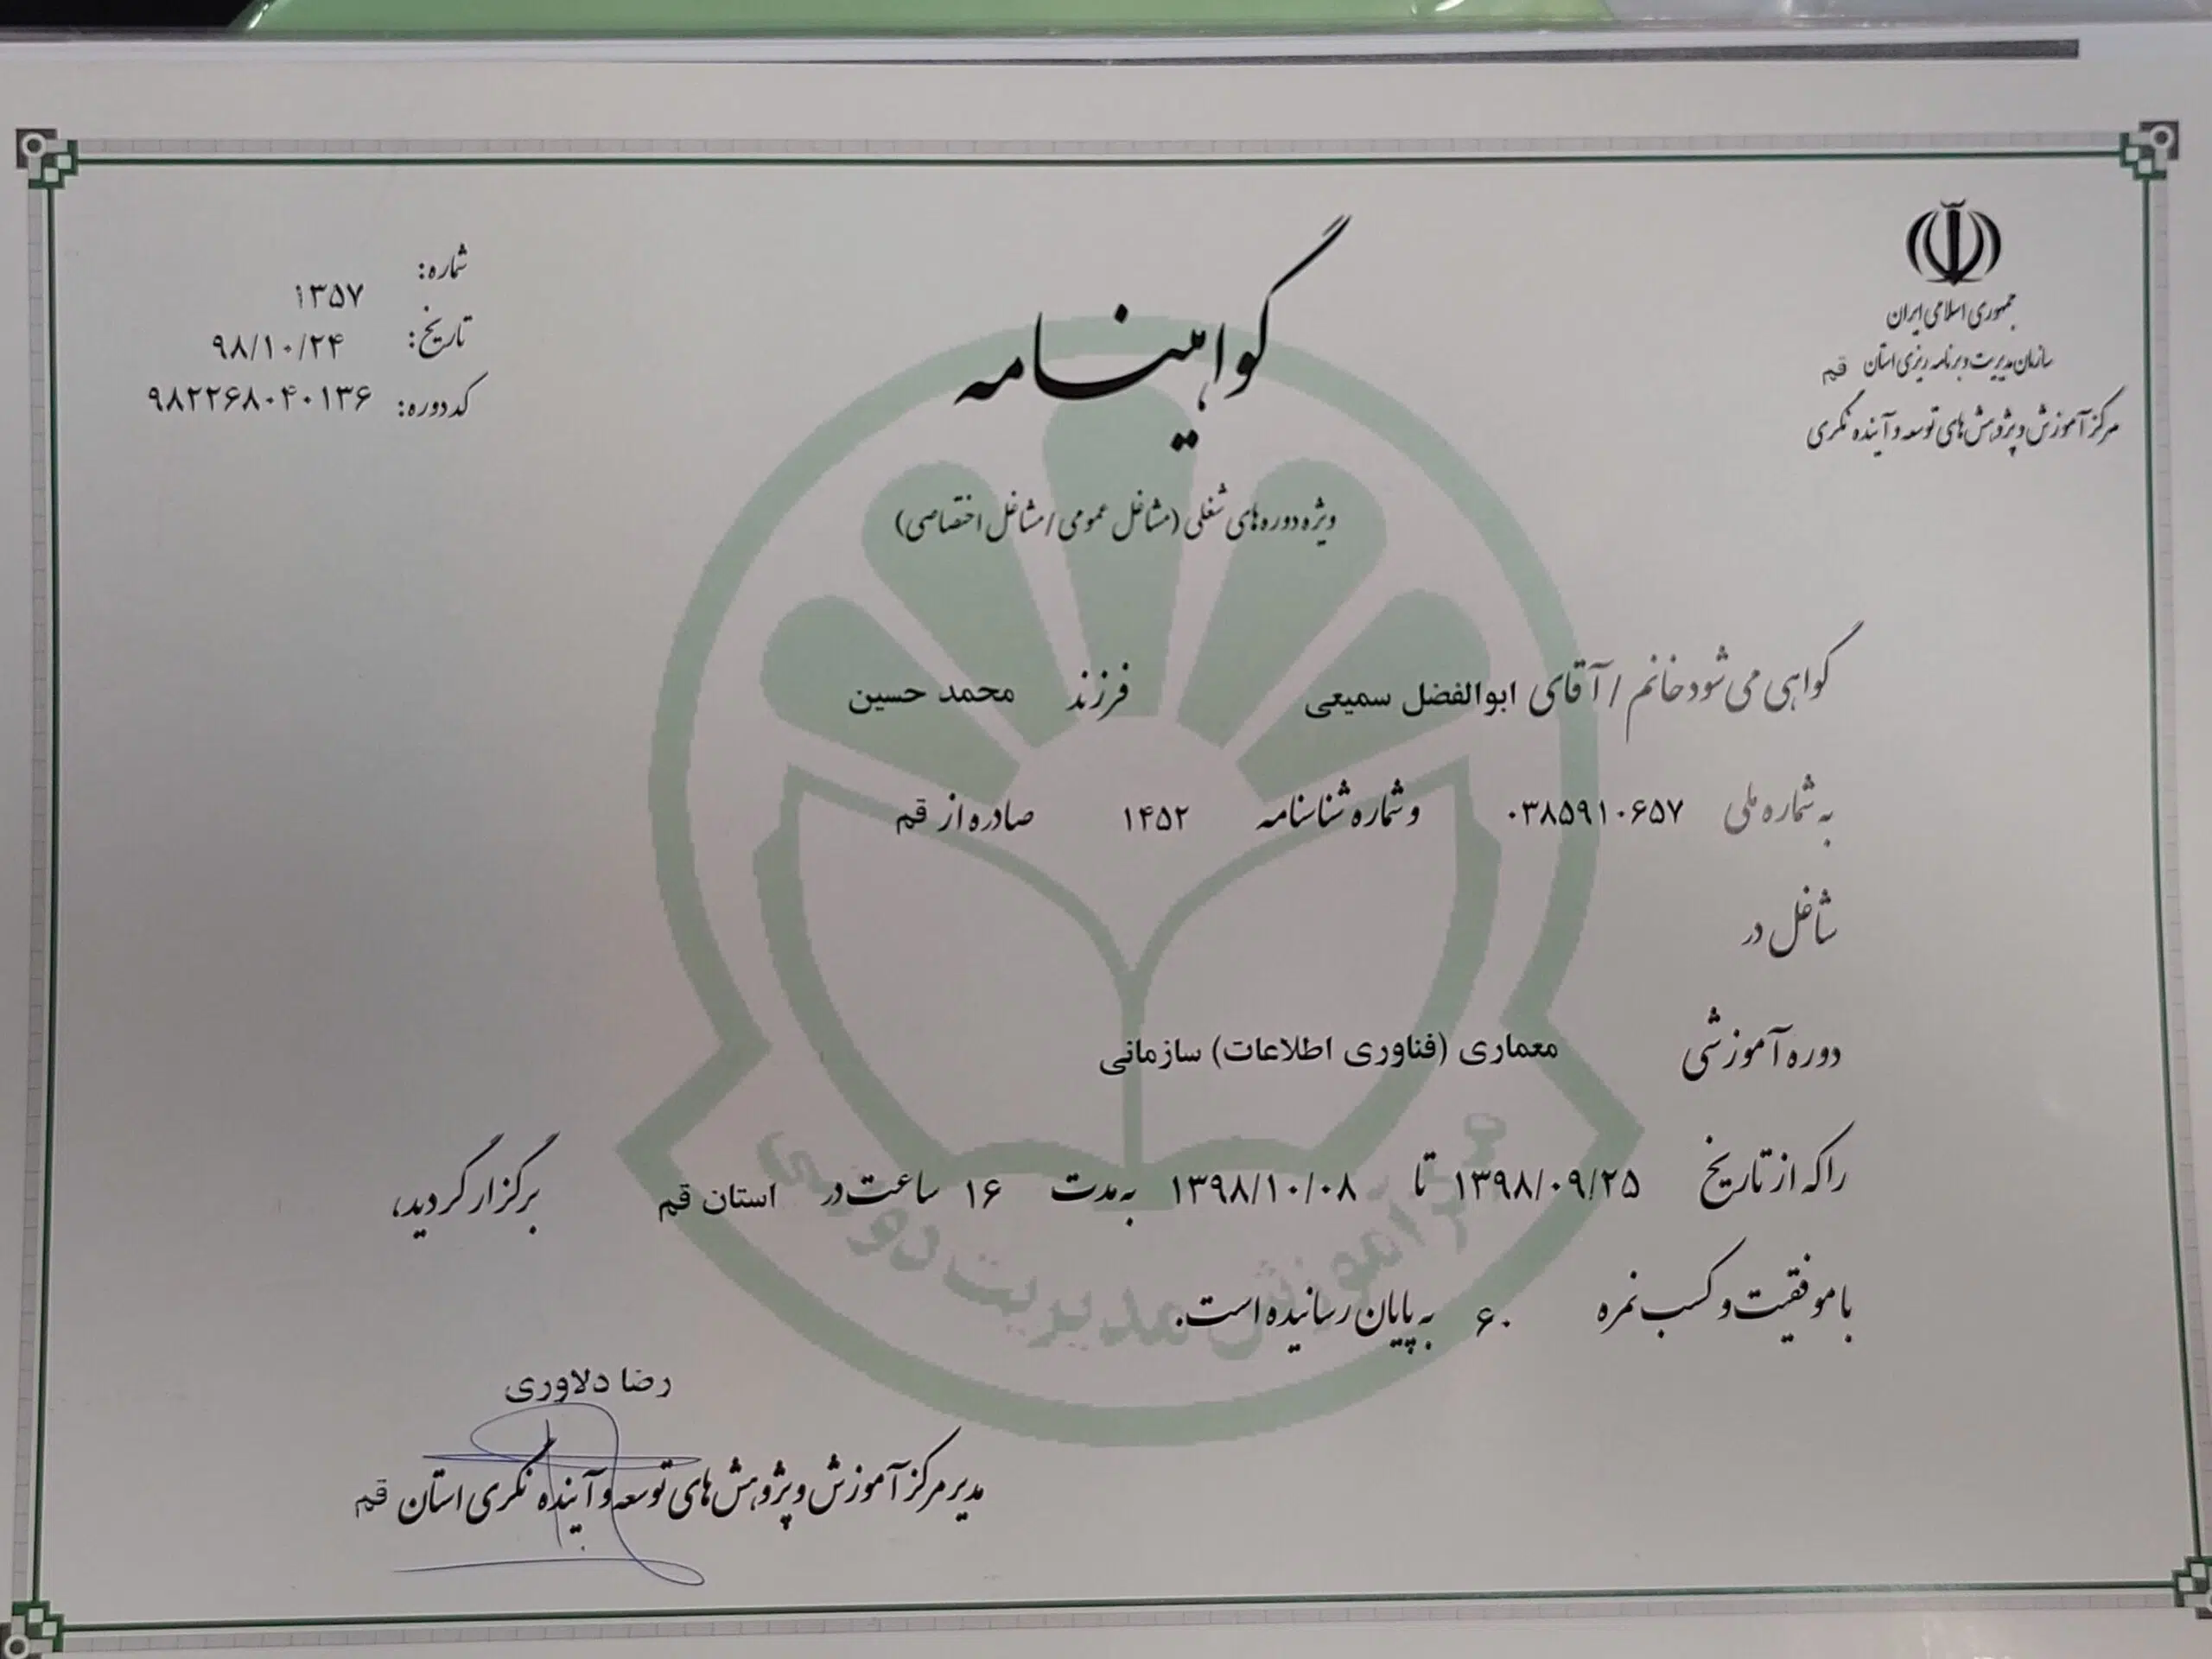 جمهوری اسلامی ایران
سازمان مدیریت و برنامه ریزی استان قم
مرکز آموزش و پژوهش های توسعه و آینده نگری
شماره: ۱۳۵۷
تاریخ: ۹۸/۱۰/۲۴
کد دوره: ۹۸۲۲۶۸۰۴۰۱۳۶
گواهینامه
ویژه دوره های شغلی (مشاغل عمومی / مشاغل اختصاصی)
گواهی می شود خانم / آقای ابوالفضل سمیعی فرزند محمد حسین
به شماره ملی ۰۳۸۵۹۱۰۶۵۷ و شماره شناسنامه ۱۴۵۲ صادره از قم
شاغل در
دوره آموزشی معماری (فناوری اطلاعات) سازمانی
را که از تاریخ ۱۳۹۸/۰۹/۲۵ تا ۱۳۹۸/۱۰/۰۸ به مدت ۱۶ ساعت در استان قم برگزار گردید،
با موفقیت و کسب نمره ۶۰ به پایان رسانیده است.
مرکز آموزش مدیریت دولتی
رضا دلاوری
مدیر مرکز آموزش و پژوهش های توسعه و آینده نگری استان قم